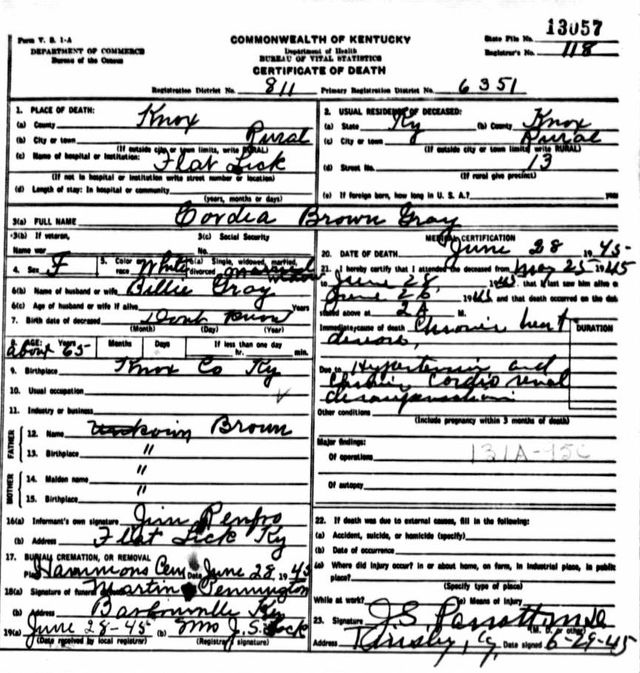 13057
Form V. S. 1-A
DEPARTMENT OF COMMERCE
Bureau of the Census
COMMONWEALTH OF KENTUCKY
Department of Health
BUREAU OF VITAL STATISTICS
CERTIFICATE OF DEATH
State File No.
Registrar's No. 118
Registration District No. 811 Primary Registration District No. 6351
1. PLACE OF DEATH:
(a) County Knox
(b) City or town Rural
(If outside city or town limits, write RURAL)
(c) Name of hospital or institution: Flat Lick
(If not in hospital or institution write street number or location)
(d) Length of stay: In hospital or community
(years, months or days)
2. USUAL RESIDENCE OF DECEASED:
(a) State Ky (b) County Knox
(c) City or town Rural
(If outside city or town limits write RURAL)
(d) Street No. 13
(If rural give precinct)
(e) If foreign born, how long in U. S. A.? year
3(a) FULL NAME Cordia Brown Gray
3(b) If veteran, 3(c) Social Security
Name war No.
4. Sex F 5. Color or race White 6(a) Single, widowed, married, divorced married
6(b) Name of husband or wife Billie Gray
6(c) Age of husband or wife if alive Years
7. Birth date of deceased Dont Know
(Month) (Day) (Year)
8. AGE: Years Months Days If less than one day
about 65 hr. min.
9. Birthplace Knox Co Ky
10. Usual occupation
11. Industry or business
FATHER
12. Name Unknown Brown
13. Birthplace "
MOTHER
14. Maiden name "
15. Birthplace "
16(a) Informant's own signature Jim Renfro
(b) Address Flat Lick Ky
17. BURIAL, CREMATION, OR REMOVAL
Place Hammons Cem Date June 28 1945
18(a) Signature of funeral Martin Pennington
(b) Address Barbourville Ky
19(a) June 28-45 (b) Mrs J.S. Lock
(Date received by local registrar) (Registrar's signature)
MEDICAL CERTIFICATION
20. DATE OF DEATH June 28 1945
21. I hereby certify that I attended the deceased from May 25 1945
to June 28, 1945 that I last saw him alive on
June 26 1945 and that death occurred on the date
stated above at 2 A M.
Immediate cause of death Chronic heart
DURATION
Due to Hypertension and
Cardio renal
Other conditions
(Include pregnancy within 3 months of death)
Major findings:
Of operations 131A-
Of autopsy
22. If death was due to external causes, fill in the following:
(a) Accident, suicide, or homicide (specify)
(b) Date of occurrence
(c) Where did injury occur? In or about home, on farm, in industrial place, in public
place?
(Specify type of place)
While at work? (e) Means of injury
23. Signature J.S. Parrott M.D.
(M. D. or other)
Address Date signed 6-29-45